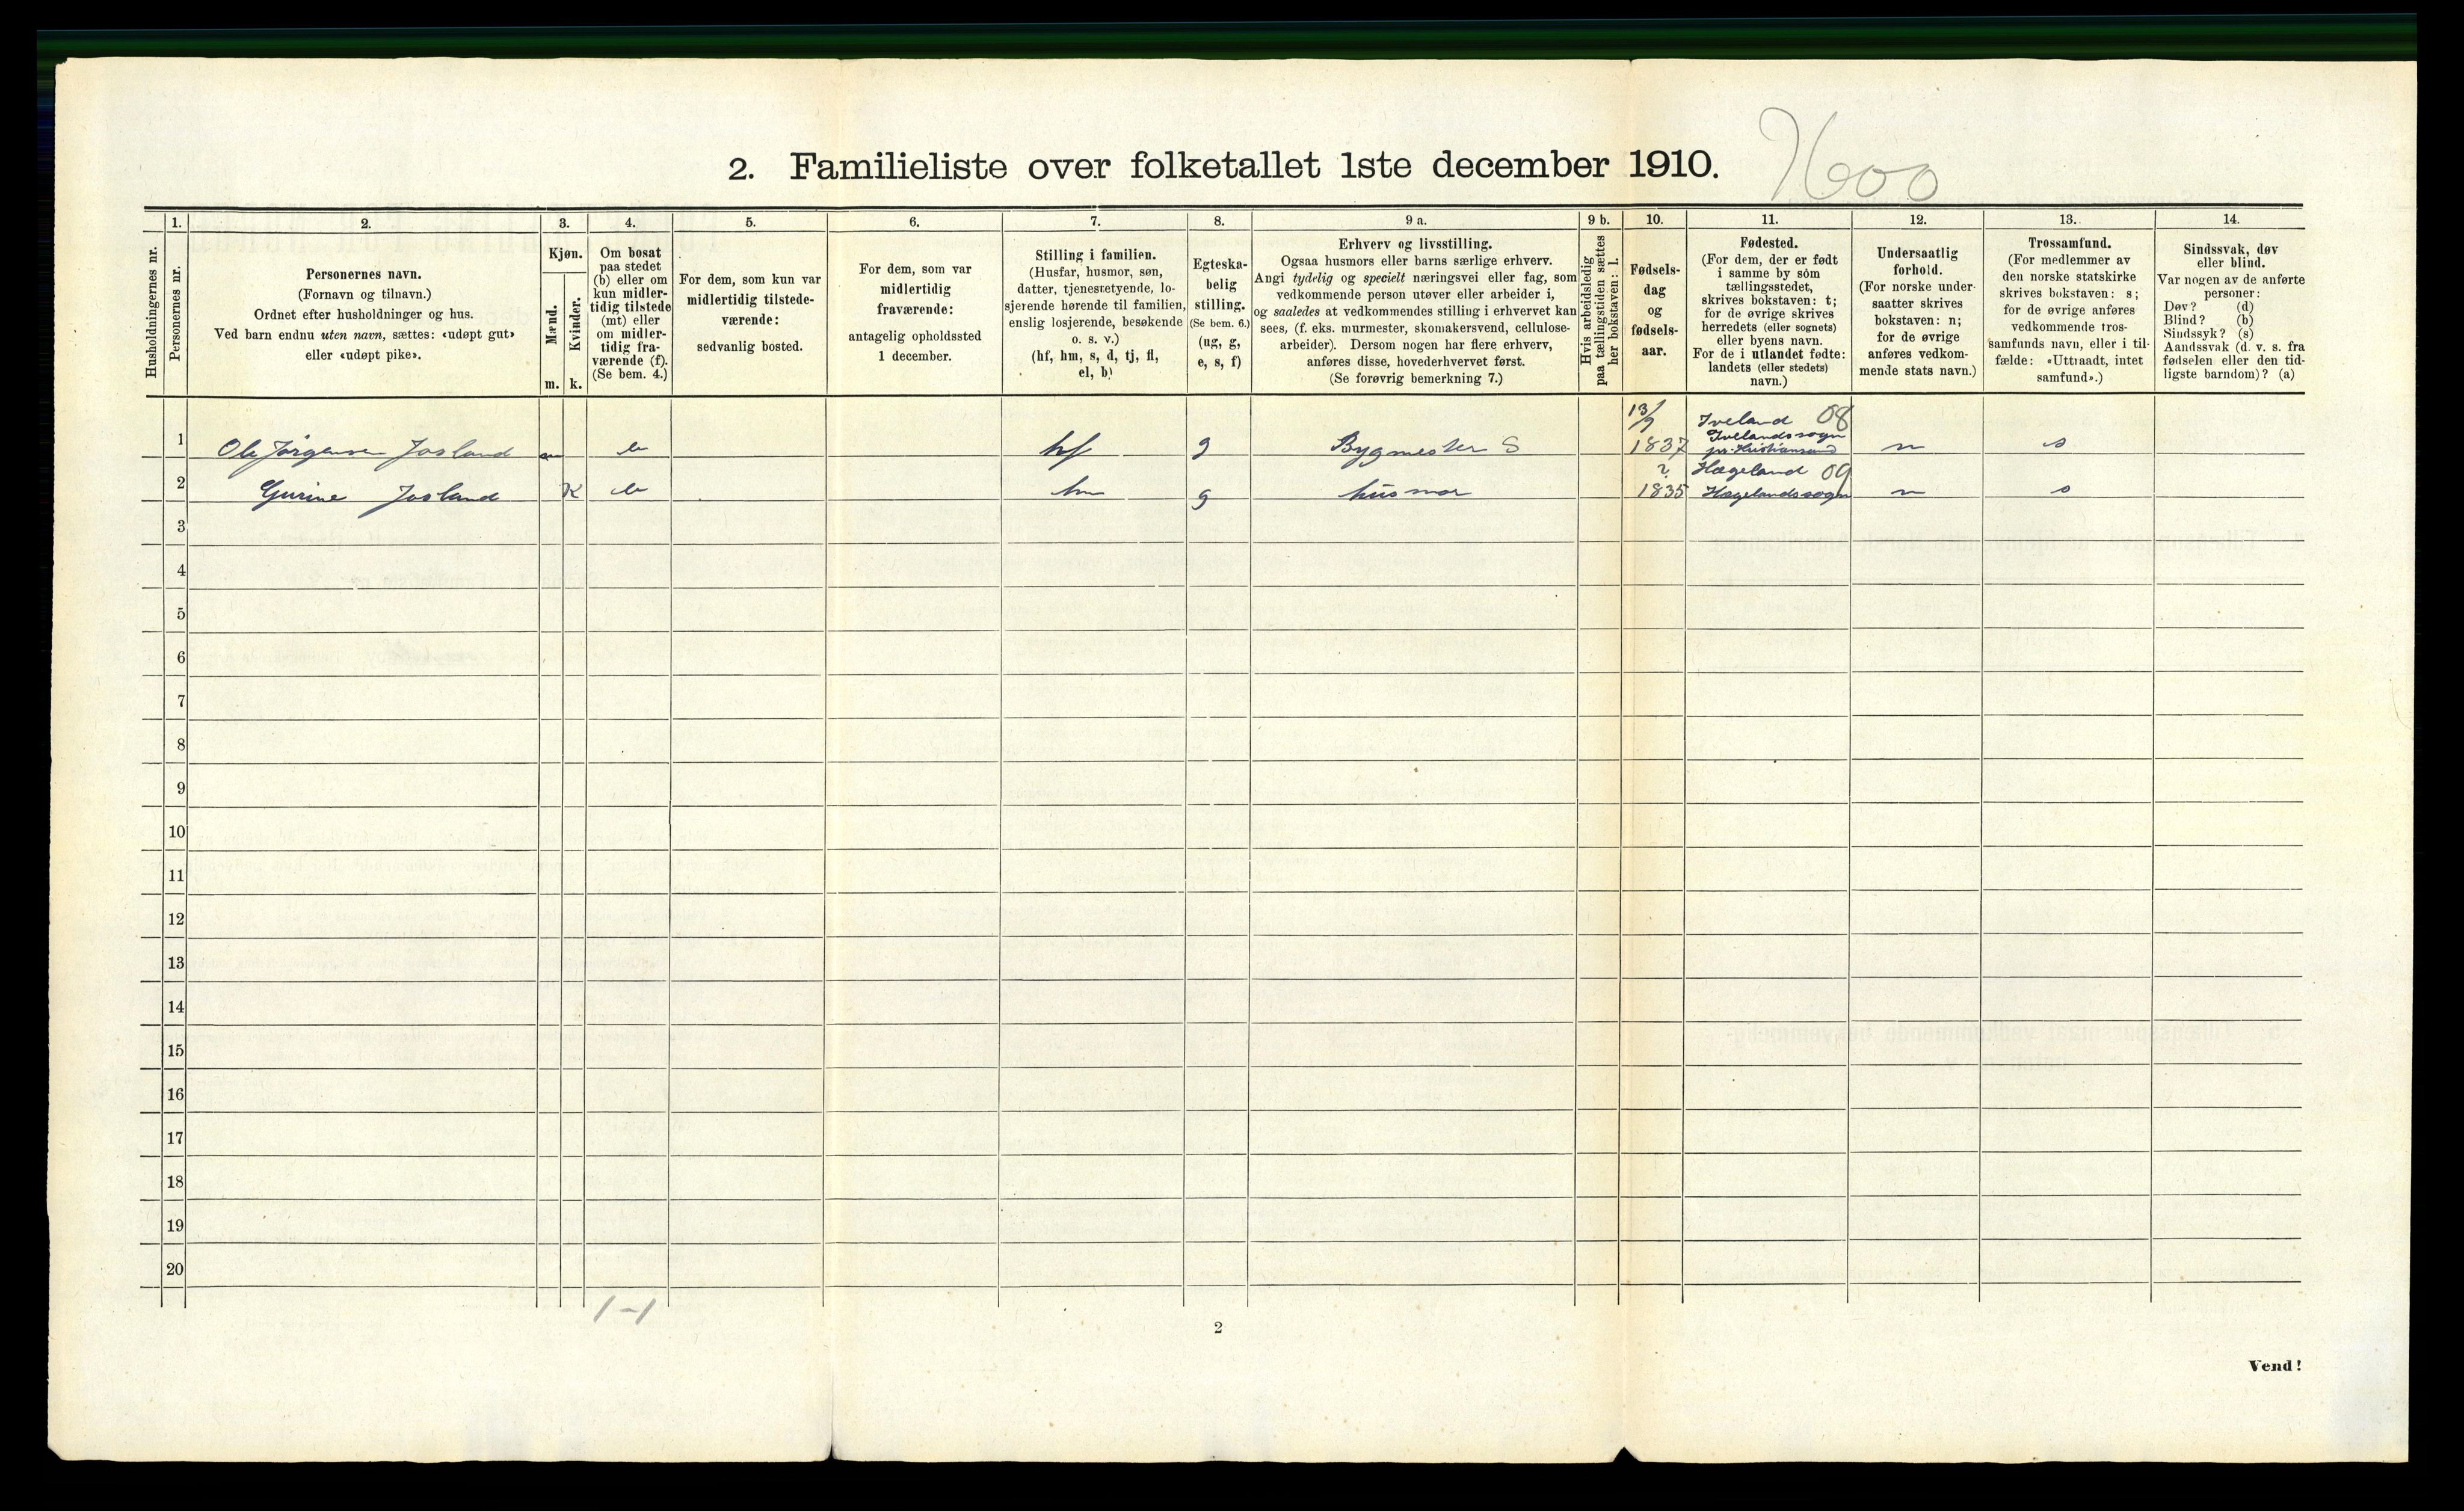 2. Familieliste over folketallet 1ste december 1910.
Husholdningernes nr.
1.
Personernes nr.
2.
Personernes navn.
(Fornavn og tilnavn.)
Ordnet efter husholdninger og hus.
Ved barn endnu uten navn, sættes: «udøpt gut»
eller «udøpt pike».
3.
Kjøn.
Mænd.
Kvinder.
m. k.
4.
Om bosat
paa stedet
(b) eller om
kun midler-
tidig tilstede
(mt) eller
om midler-
tidig fra-
værende (f).
(Se bem. 4.)
5.
For dem, som kun var
midlertidig tilstede-
værende:
sedvanlig bosted.
6.
For dem, som var
midlertidig
fraværende:
antagelig opholdssted
1 december.
7.
Stilling i familien.
(Husfar, husmor, søn,
datter, tjenestetyende, lo-
sjerende hørende til familien,
enslig losjerende, besøkende
o. s. v.)
(hf, hm, s, d, tj, fl,
el, b)
8.
Egteska-
belig
stilling.
(Se bem. 6.)
(ug, g,
e, s, f)
9 a.
Erhverv og livsstilling.
Ogsaa husmors eller barns særlige erhverv.
Angi tydelig og specielt næringsvei eller fag, som
vedkommende person utøver eller arbeider i,
og saaledes at vedkommendes stilling i erhvervet kan
sees, (f. eks. murmester, skomakersvend, cellulose-
arbeider). Dersom nogen har flere erhverv,
anføres disse, hovederhvervet først.
(Se forøvrig bemerkning 7.)
9 b.
Hvis arbeidsledig
paa tællingstiden sættes
her bokstaven: l.
10.
Fødsels-
dag
og
fødsels-
aar.
11.
Fødested.
(For dem, der er født
i samme by som
tællingsstedet,
skrives bokstaven: t;
for de øvrige skrives
herredets (eller sognets)
eller byens navn.
For de i utlandet fødte:
landets (eller stedets)
navn.)
12.
Undersaatlig
forhold.
(For norske under-
saatter skrives
bokstaven: n;
for de øvrige
anføres vedkom-
mende stats navn.)
13.
Trossamfund.
(For medlemmer av
den norske statskirke
skrives bokstaven: s;
for de øvrige anføres
vedkommende tros-
samfunds navn, eller i til-
fælde: «Uttraadt, intet
samfund».)
14.
Sindssvak, døv
eller blind.
Var nogen av de anførte
personer:
Døv? (d)
Blind? (b)
Sindssyk? (s)
Aandssvak (d. v. s. fra
fødselen eller den tid-
ligste barndom)? (a)
13/7 Iveland 08
Ivelandssogn
1 Ole Jörgensen Josland m b hf g Bygmester S 1837 pr. Kristiansand n s
? Hægeland 09
2 Gurine Josland K b hm g husmor 1835 Hægelandssogn n s
3
4
5
6
7
8
9
10
11
12
13
14
15
16
17
18
19
20
1-1
2
Vend!